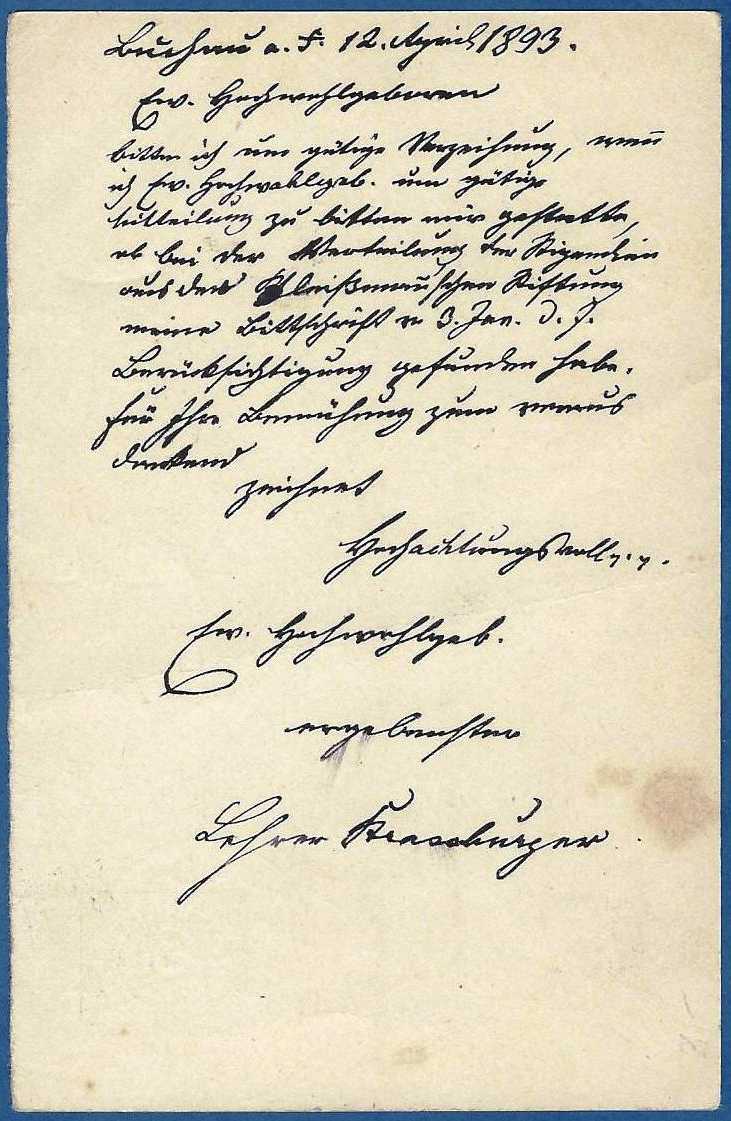 Buchau a. F. 12. April 1893.
Ew. Hochwohlgeboren
bitte ich um gütige Verzeihung, wenn
ich Ew. Hochwohlgeb. um gütige
Mitteilung zu bitten mir gestatte,
ob bei der Verteilung der Stipendien
aus der Stiftung
meine Bittschrift v. 3. Jan. d. J.
Berücksichtigung gefunden habe.
Für Ihre Bemühung zum voraus
dankend
zeichnet
Hochachtungsvoll
Ew. Hochwohlgeb.
ergebenster
Lehrer Strassburger